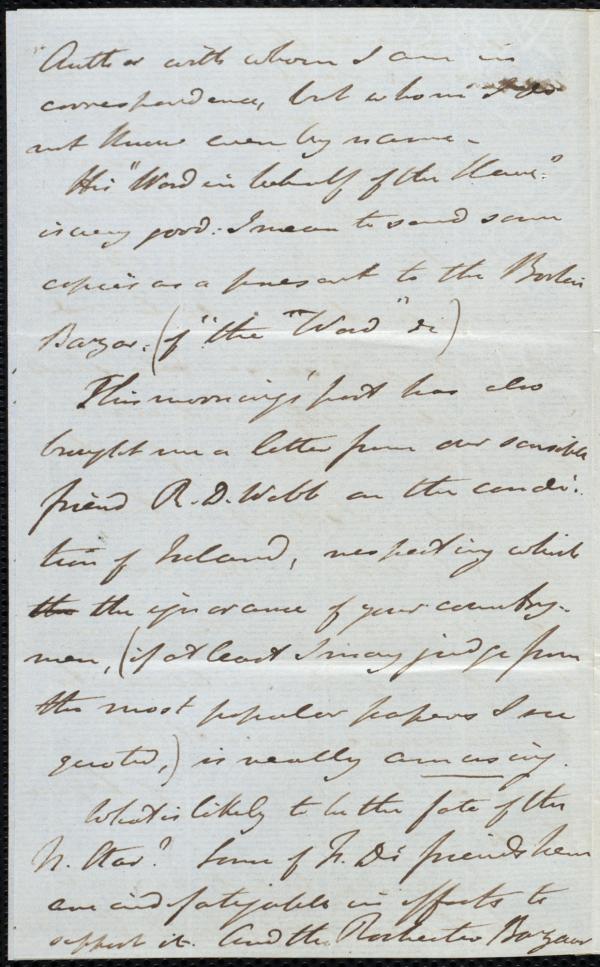 "Author with whom I am in
correspondence, but whom I do
not know even by name.
His "Word in behalf of the Slave"
is very good: I mean to send some
copies as a present to the Boston
Bazar. (of "the "Word" &c)
This morning's post has also
brought me a letter from our sensible
friend R. D. Webb on the condi-
tion of Ireland, respecting which
the the ignorance of your country-
men, (if at least I may judge from
the most popular papers I see
quoted,) is really amusing.
What is likely to be the fate of the
N. Star? Some of F. D's friends here
are indefatigable in efforts to
support it. And the Rochester Bazaar